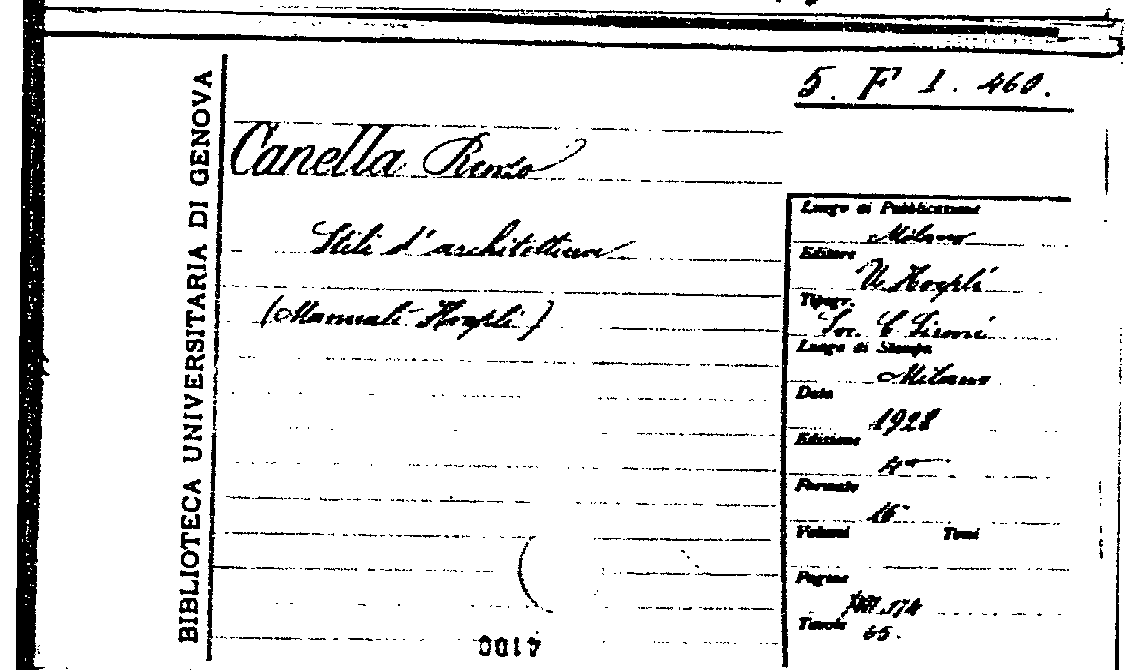 5. F 1. 460.
BIBLIOTECA UNIVERSITARIA DI GENOVA
Canella Renzo
Stili d'architettura
(Manuali Hoepli)
Luogo di Pubblicazione
Milano
Editore
U. Hoepli
Tipogr.
Soc.
Luogo di Stampa
Milano
Data
1928
Edizione
4ª
Formato
16°
Volumi Tomi
Pagine
174
Tavole
65.